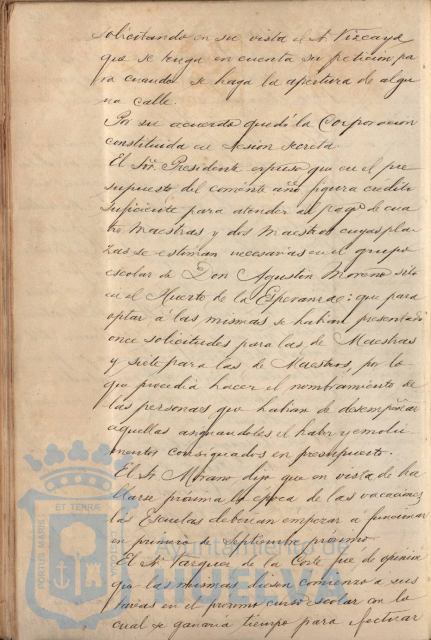 solicitando en su vista el Sr Vizcaya
que se tenga en cuenta su peticion pa
ra cuando se haga la apertura de algu
na calle.
Por su acuerdo quedó la Corporacion
constituida en Sesion secreta
El Sr. Presidente expuso que en el pre
supuesto del corriente año figura credito
suficiente para atender al pago de cua
tro Maestras y dos Maestros cuyas pla
zas se estiman necesarias en el grupo
escolar de Don Agustin Moreno sito
en el Huerto de la Esperanza: que para
optar á las mismas se habian presentado
once solicitudes para las de Maestras
y siete para las de Maestros, por lo
que procedia hacer el nombramiento de
las personas que habian de desempeñar
aquellas asignandoles el haber y emolu
mentos consignados en presupuesto.
El Sr Morano dijo que en vista de ha
llarse próxima la época de las vacaciones
las Escuelas deberian empezar a funcionar
en primero de Septiembre próximo.
El Sr Vazquez de la Corte fue de opinion
que las mismas diesen comienzo a sus
tareas en el próximo curso escolar con lo
cual se ganaria tiempo para efectuar
PORTUS MARIS ET TERRÆ
Ayuntamiento de
HUELVA